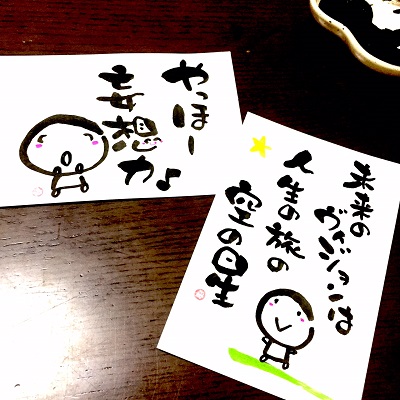 やっほー
妄想力♪
未来の
ヴィジョンは
人生の旅の
空の星